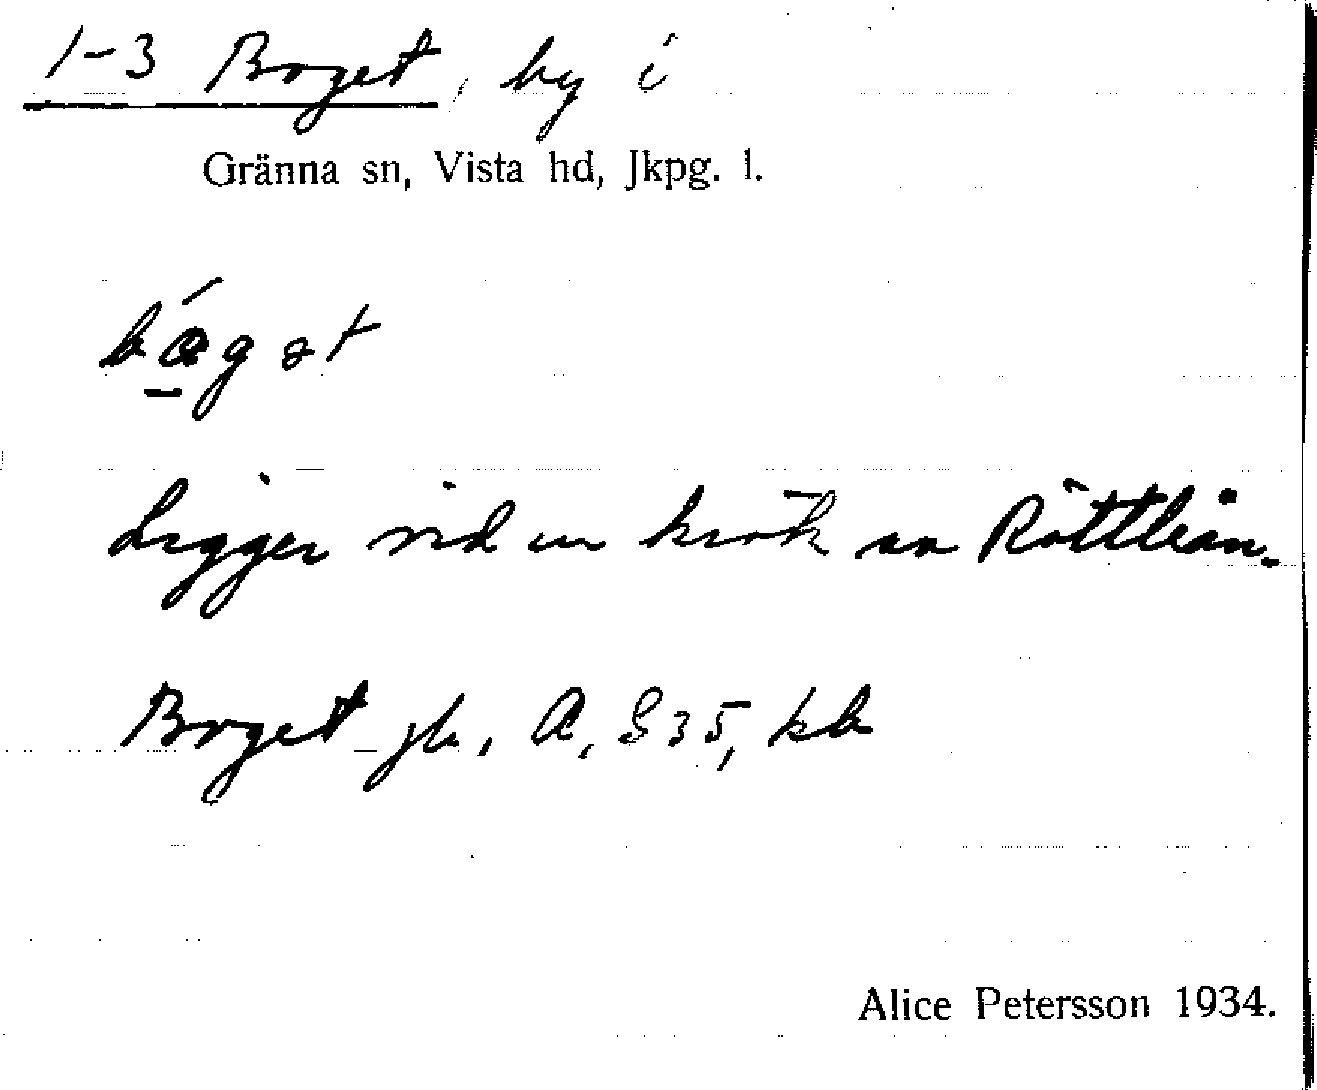 1-3 Boget, by i
Gränna sn, Vista hd, Jkpg. l.
Ligger vid en krök av Röttleån.
Boget jb, A, S 35, kb
Alice Petersson 1934.